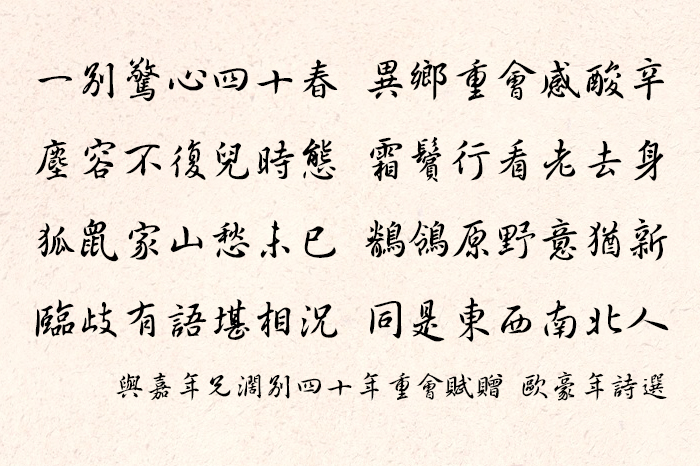 一別驚心四十春 異鄉重會感酸辛
塵容不復兒時態 霜鬢行看老去身
狐鼠家山愁未已 鶺鴒原野意猶新
臨歧有語堪相況 同是東西南北人
與嘉年兄濶別四十年重會賦贈 歐豪年詩選